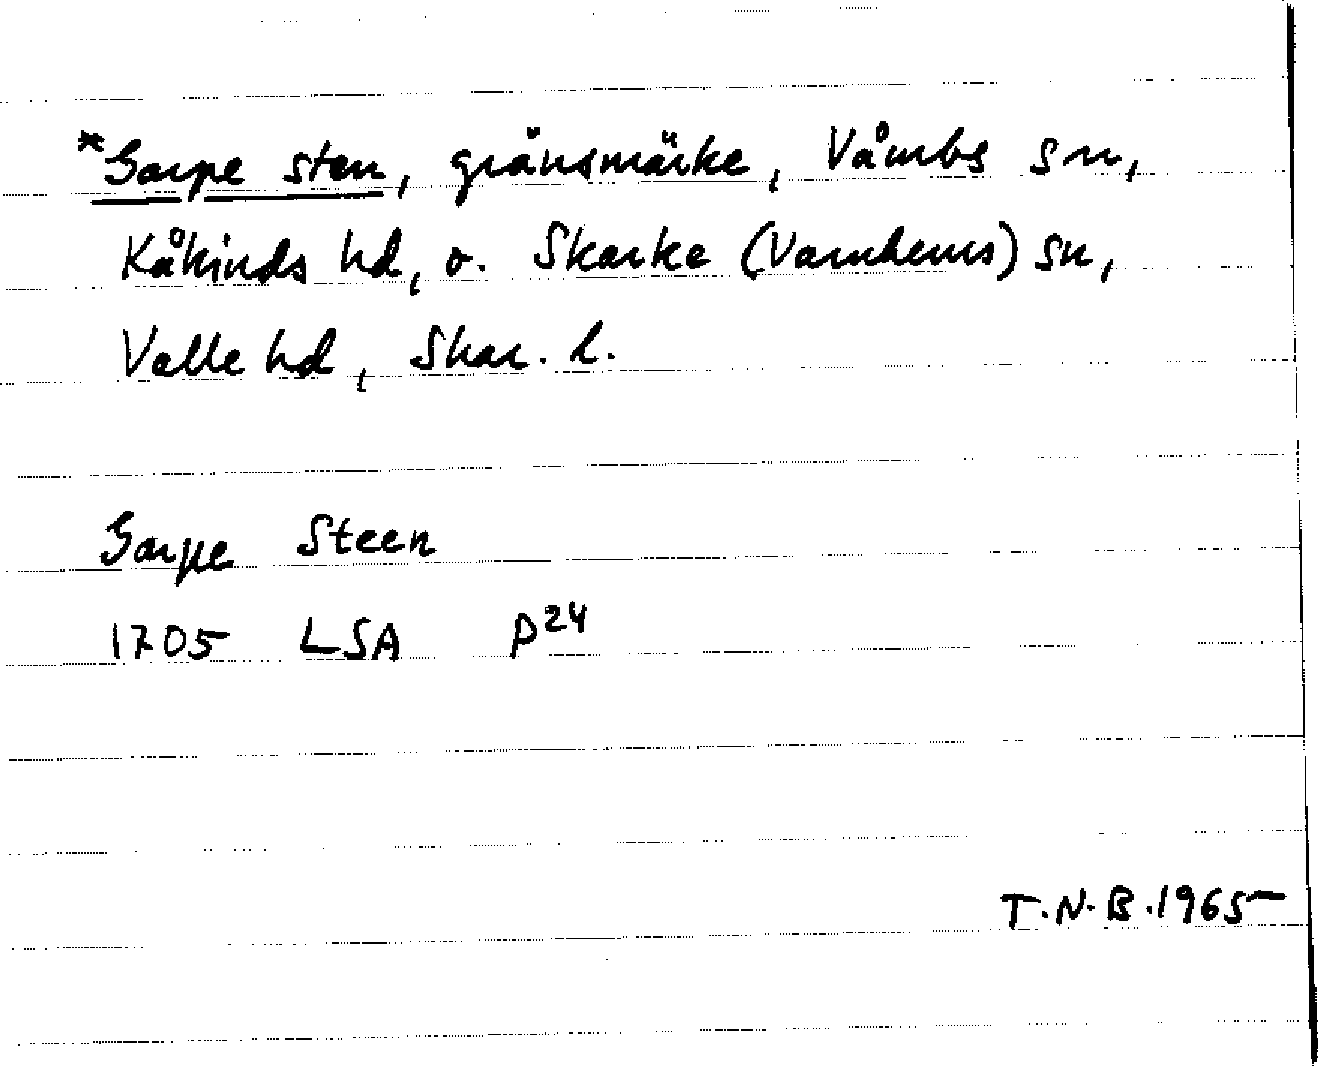 *Garpe sten, gränsmärke, Våmbs sn,
Kåkinds hd, o. Skarke (Varnhems) sn,
Valle hd, Skar. l.
Garpe Steen
1705 LSA P24
T.N.B. 1965